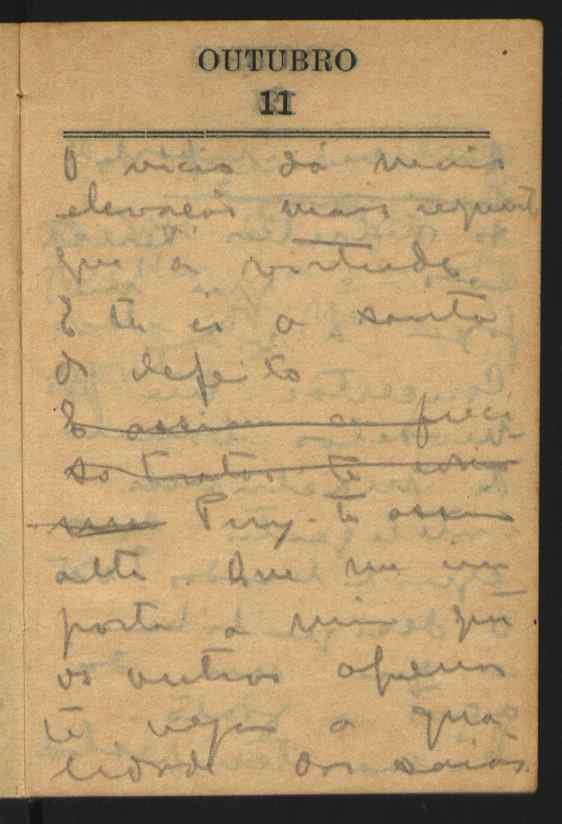 OUTUBRO
11
O vicio dá mais
elevação mais
que a virtude.
E tu és a santa
do defeito
E assim eu preci-
so tratar-te
Puz-te assim
alta. Que me im
porta a mim que
os outros apenas
te vejam a qua-
lidade das saias.